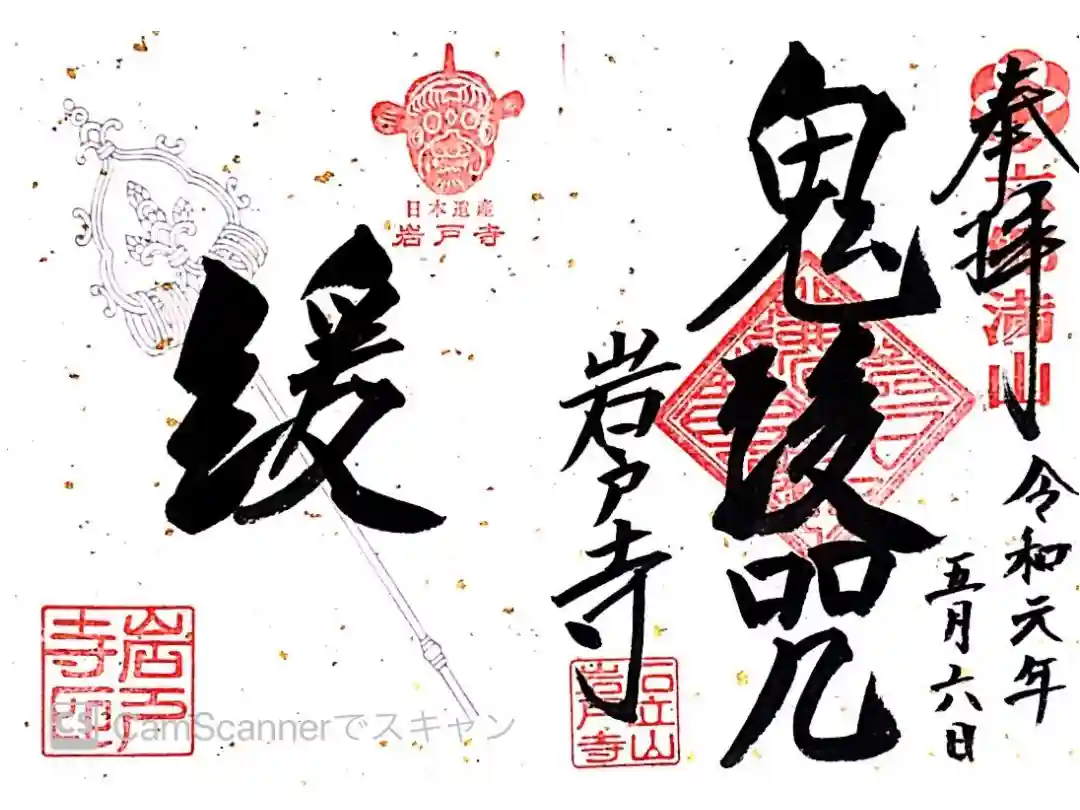 奉拝
六郷満山
令和元年
五月六日
鬼後咒
岩戸寺
石立山
岩戸寺
日本遺産
岩戸寺
緩
岩戸
寺印
CS CamScannerでスキャン